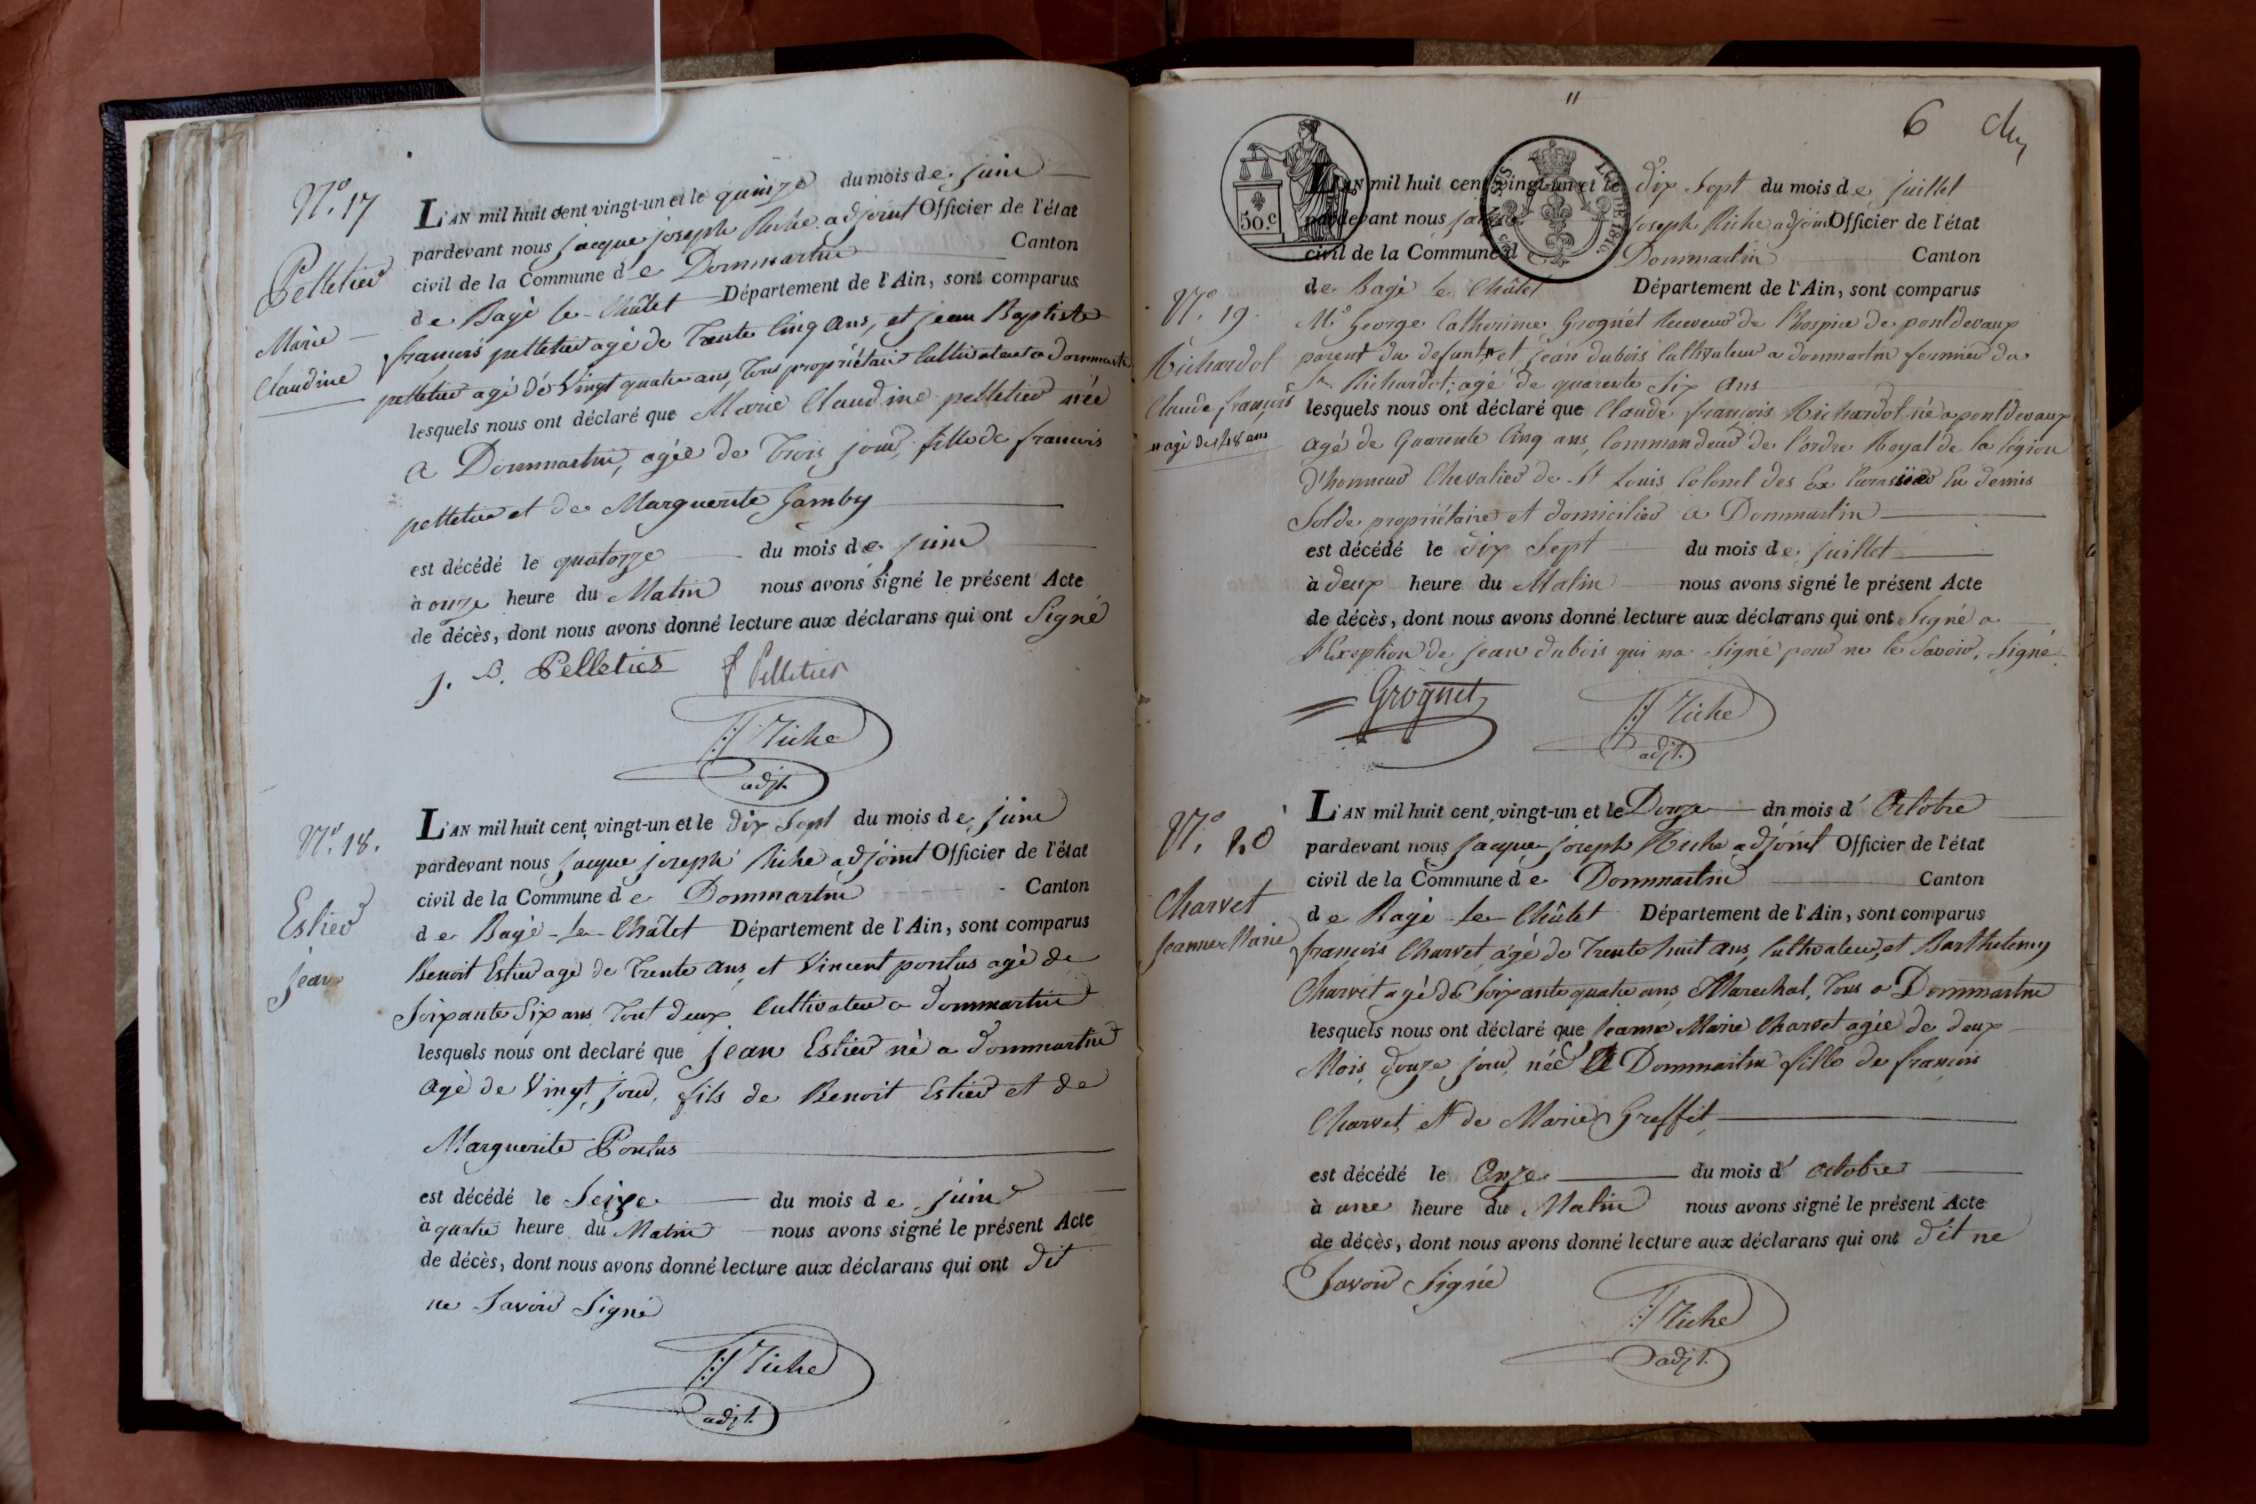 N.º 17
Pelletier
Marie
Claudine
L'AN mil huit cent vingt-un et le quinze du mois de juin
pardevant nous jacque joseph Riche adjoint Officier de l'état
civil de la Commune de Dommartin Canton
de Bagé le Châtel Département de l'Ain, sont comparus
françois pelletier agé de Trente Cinq ans, et jean Baptiste
pelletier agé de Vingt quatre ans, Tous propriétaire Cultivateur a dommartin
lesquels nous ont déclaré que Marie Claudine pelletier née
a Dommartin, agée de Trois jour, fille de francois
pelletier et de Marguerite Gamby
est décédé le quatorze du mois de juin
à onze heure du Matin nous avons signé le présent Acte
de décès, dont nous avons donné lecture aux déclarans qui ont Signé
J. B. Pelletier f Pelletier
JJ Riche
adjt.
N.º 18.
Estier
jean
L'AN mil huit cent vingt-un et le dix Sept du mois de juin
pardevant nous jacque joseph Riche adjoint Officier de l'état
civil de la Commune de Dommartin Canton
de Bagé le Châtel Département de l'Ain, sont comparus
Benoit Estier agé de Trente ans, et Vincent pontus agé de
Soixante Six ans Tout deux Cultivateur a dommartin
lesquels nous ont declaré que jean Estier né a dommartin
agé de Vingt jour, fils de Benoit Estier et de
Marguerite Pontus
est décédé le Seize du mois de juin
à quatre heure du Matin nous avons signé le présent Acte
de décès, dont nous avons donné lecture aux déclarans qui ont dit
ne Savoir Signé
JJ Riche
adjt.
11
6
50 c
LOI DE 1816
L'AN mil huit cent vingt-un et le dix Sept du mois de juillet
pardevant nous jacque joseph Riche adjoint Officier de l'état
civil de la Commune de Dommartin Canton
de Bagé le Châtel Département de l'Ain, sont comparus
N.º 19.
Richardot
Claude françois
agé de 48 ans
M.r George Catherine Grognet Receveur de l'hospice de pontdevaux
parent du defunt, et jean dubois Cultivateur a dommartin fermier du
Sr. Richardot, agé de quarente Six ans
lesquels nous ont déclaré que Claude françois Richardot né a pontdevaux
agé de Quarente Cinq ans, Commandeur de l'ordre Royal de la légion
d'honneur Chevalier de St Louis Colonel des Ex Cuirassier En demis
Solde, propriétaire et domicilier a Dommartin
est décédé le dix Sept du mois de juillet
à deux heure du Matin nous avons signé le présent Acte
de décès, dont nous avons donné lecture aux déclarans qui ont Signé a
l'Exseption de jean dubois qui na Signé pour ne le Savoir. Signé
Grognet JJ Riche
adjt.
N.º 20
Charvet
jeanne Marie
L'AN mil huit cent vingt-un et le Douze dn mois d' Octobre
pardevant nous jacque joseph Riche adjoint Officier de l'état
civil de la Commune de Dommartin Canton
de Bagé le Châtel Département de l'Ain, sont comparus
françois Charvet agé de Trente huit ans, Cultivateur, et Barthelemy
Charvet agé de Soixante quatre ans Marechal, Tous a Dommartin
lesquels nous ont déclaré que jeanne Marie Charvet agée de deux
Mois douze jour, née a Dommartin fille de françois
Charvet et de Marie Greffet
est décédé le Onze du mois d' octobre
à une heure du Matin nous avons signé le présent Acte
de décès, dont nous avons donné lecture aux déclarans qui ont dit ne
Savoir Signé
JJ Riche
adjt.